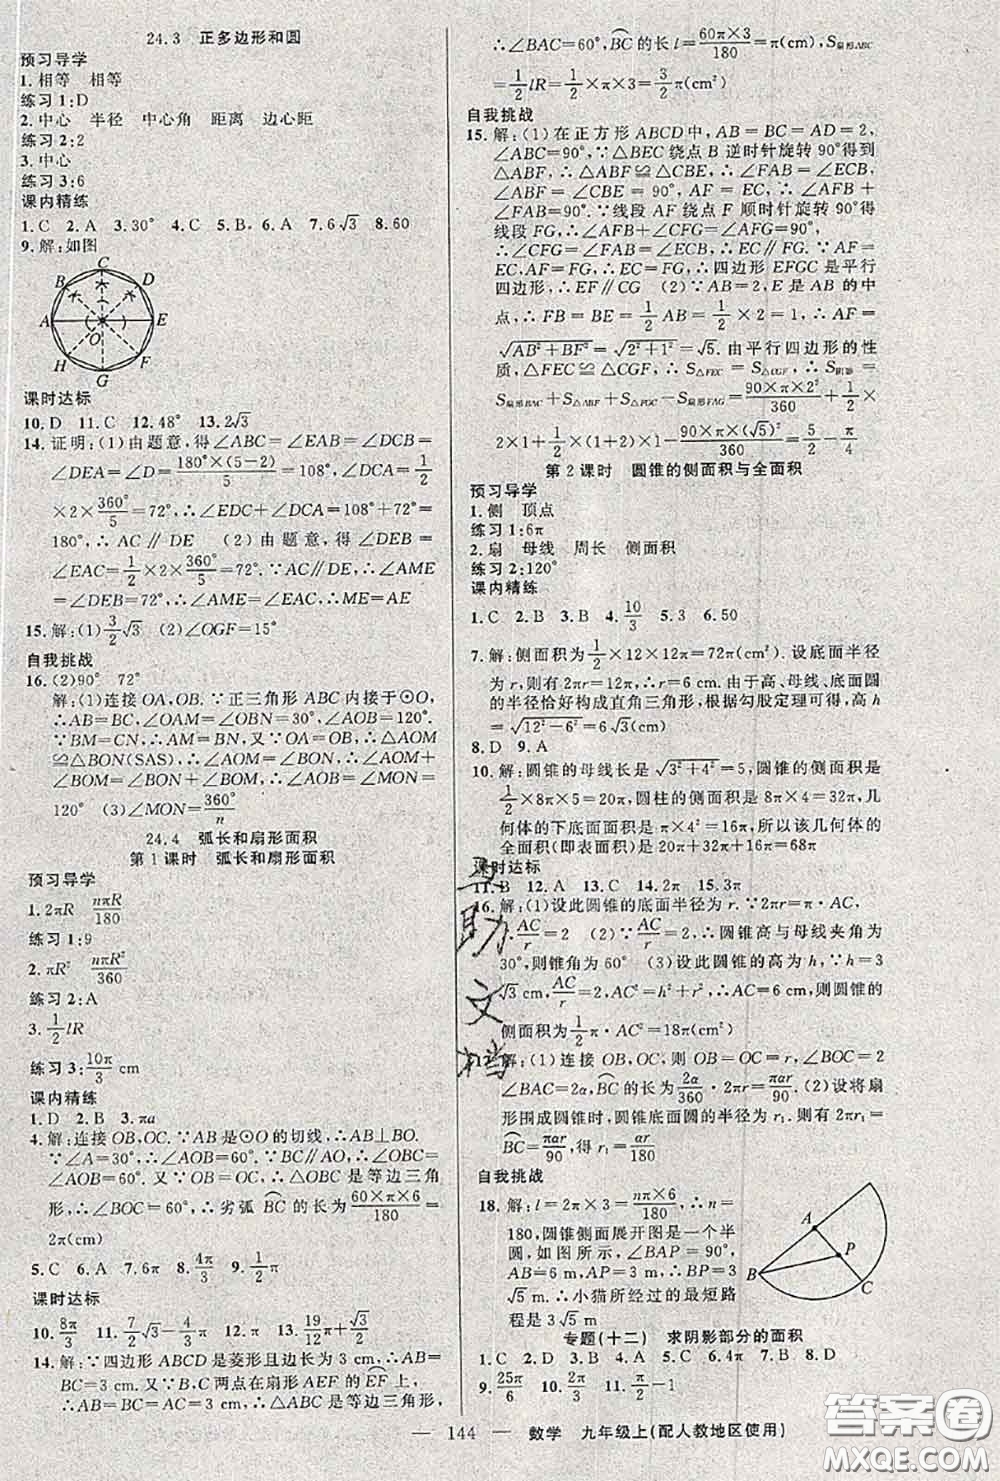 24.3 正多边形和圆
预习导学
1.相等 相等
练习1:D
2.中心 半径 中心角 距离 边心距
练习2:2
3.中心
练习3:6
课内精练
1.C 2.A 3.30° 4.C 5.B 6.A 7.6√3 8.60
9.解:如图
C
B D
A E
O
H F
G
课时达标
10.D 11.C 12.48° 13.2√3
14.证明:(1)由题意,得∠ABC=∠EAB=∠DCB=
∠DEA=∠D=180°×(5-2)/5=108°,∠DCA=1/2
×2×360°/5=72°,∴∠EDC+∠DCA=108°+72°=
180°,∴AC∥DE (2)由题意,得∠DEB=
∠EAC=1/2×2×360°/5=72°,∴∠AME=180°-
∠DEB=72°,∴∠AME=∠EAC,∴ME=AE
15.解:(1)3/2√3 (2)∠OGF=15°
自我挑战
16.(2)90° 72°
解:(1)连接OA,OB.∵正三角形ABC内接于⊙O,
∴AB=BC,∠OAM=∠OBN=30°,∠AOB=120°.
∵BM=CN,∴AM=BN,又∵OA=OB,∴△AOM
≌△BON(SAS),∴∠AOM=∠BON,∴∠AOM+
∠BOM=∠BON+∠BOM,∴∠AOB=∠MON=
120° (3)∠MON=360°/n
24.4 弧长和扇形面积
第1课时 弧长和扇形面积
预习导学
1.2πR nπR/180
练习1:9
2.πR² nπR²/360
练习2:A
3.1/2lR
练习3:10π/3 cm
课内精练
1.D 2.B 3.πa
4.解:连接OB,OC.∵AB是⊙O的切线,∴AB⊥BO.
∵∠A=30°,∴∠AOB=60°.∵BC∥AO,∴∠OBC=
∠AOB=60°.又∵OB=OC,∴△OBC是等边三角
形,∴∠BOC=60°,∴劣弧BC的长为60×π×6/180=
2π(cm)
5.C 6.A 7.6π 8.4π/3 9.1/2π
课时达标
10.8π/3 11.7/2√3-4/3π 12.19/12π+3 13.π
14.解:∵四边形ABCD是菱形且边长为3 cm,∴AB
=BC=3 cm.又∵B、C两点在扇形AEF的EF上,
∴AB=BC=AC=3 cm,∴△ABC是等边三角形,
∴∠BAC=60°,BC的长l=60π×3/180=π(cm),S扇形ABC
=1/2lR=1/2×π×3=3/2π(cm²)
自我挑战
15.解:(1)在正方形ABCD中,AB=BC=AD=2,
∠ABC=90°,∵△BEC绕点B逆时针旋转90°得到
△ABF,∴△ABF≌△CBE,∴∠FAB=∠ECB,
∠ABF=∠CBE=90°,AF=EC,∴∠AFB+
∠FAB=90°.∵线段AF绕点F顺时针旋转90°得
线段FG,∴∠AFB+∠CFG=∠AFG=90°,∴
∠CFG=∠FAB=∠ECB,∴EC∥FG.∵AF=
EC,AF=FG,∴EC=FG,∴四边形EFGC是平行
四边形,∴EF∥CG (2)∵AB=2,E是AB的中
点,∴FB=BE=1/2AB=1/2×2=1,∴AF=
√AB²+BF²=√2²+1²=√5.由平行四边形的性
质,△FEC≌△CGF,∴S△FEC=S△CGF,∴S阴影=
S扇形BAC+S△ABF+S△FGC-S扇形FAG=90×π×2²/360+1/2×
2×1+1/2×(1+2)×1-90×π×(√5)²/360=5/2-π/4
第2课时 圆锥的侧面积与全面积
预习导学
1.侧 顶点
练习1:6π
2.扇 母线 周长 侧面积
练习2:120°
课内精练
1.C 2.B 3.B 4.10/3 5.3 6.50
7.解:侧面积为1/2×12×12π=72π(cm²).设底面半径
为r,则有2πr=12π,∴r=6 cm.由于高、母线、底面圆
的半径恰好构成直角三角形,根据勾股定理可得,高h
=√12²-6²=6√3(cm)
8.D 9.A
10.解:圆锥的母线长是√3²+4²=5,圆锥的侧面积是
1/2×8π×5=20π,圆柱的侧面积是8π×4=32π,几
何体的下底面面积是π×4²=16π,所以该几何体的
全面积(即表面积)是20π+32π+16π=68π
课时达标
11.B 12.A 13.C 14.2π 15.3π
16.解:(1)设此圆锥的底面半径为r.∵2πr=π·AC,
∴AC/r=2 (2)∵AC/r=2,∴圆锥高与母线夹角为
30°,则锥角为60° (3)设此圆锥的高为h.∵h=3
√3 cm,AC/r=2,AC²=h²+r²,∴AC=6 cm,则圆锥的
侧面积为1/2π·AC²=18π(cm²)
17.解:(1)连接OB,OC,则OB=OC=r,∠BOC=2
∠BAC=2α,∴BC的长为2α/360·2πr=παr/90 (2)设将扇
形围成圆锥时,圆锥底面圆的半径为r₁.由于2πr₁=
BC=παr/90,得r₁=αr/180
自我挑战
18.解:l=2π×3=nπ×6/180,∴n=
180,圆锥侧面展开图是一个半
圆,如图所示,∠BAP=90°,
AB=6 m,AP=3 m,∴BP=3
√5 m,∴小猫所经过的最短路
程是3√5 m
A
P
B C
专题(十二) 求阴影部分的面积
1.C 2.B 3.A 4.D 5.C 6.4π 7.B 8.D
9.25π/6 10.2π/3 11.π/2-1
144 数学 九年级上(配人教地区使用)
互助文档
答案圈
MXQE.COM